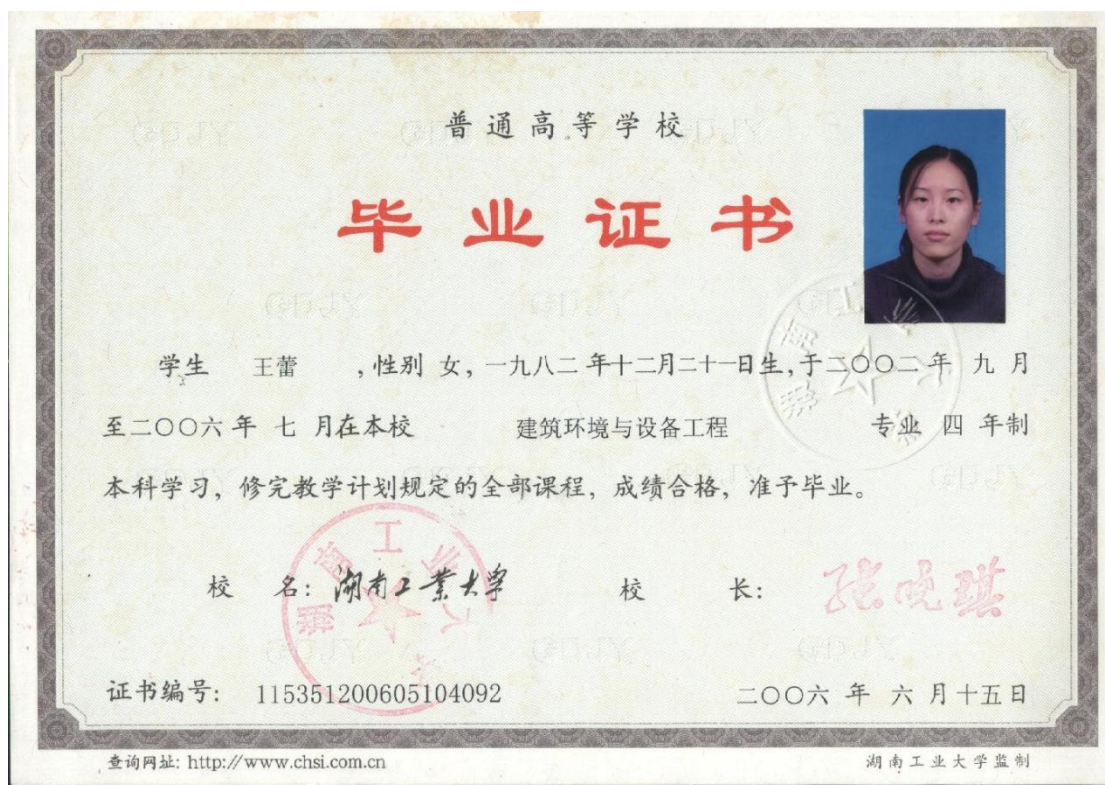 普通高等学校
毕业证书
学生 王蕾 ,性别 女,一九八二年十二月二十一日生,于二〇〇二年 九 月
至二〇〇六年 七 月在本校 建筑环境与设备工程 专业 四 年制
本科学习,修完教学计划规定的全部课程,成绩合格,准予毕业。
校 名:湖南工業大学 校 长:张晓琪
湖南工业大学
湖南工业大学
证书编号: 115351200605104092 二〇〇六 年 六 月十五日
查询网址: http://www.chsi.com.cn 湖南工业大学监制